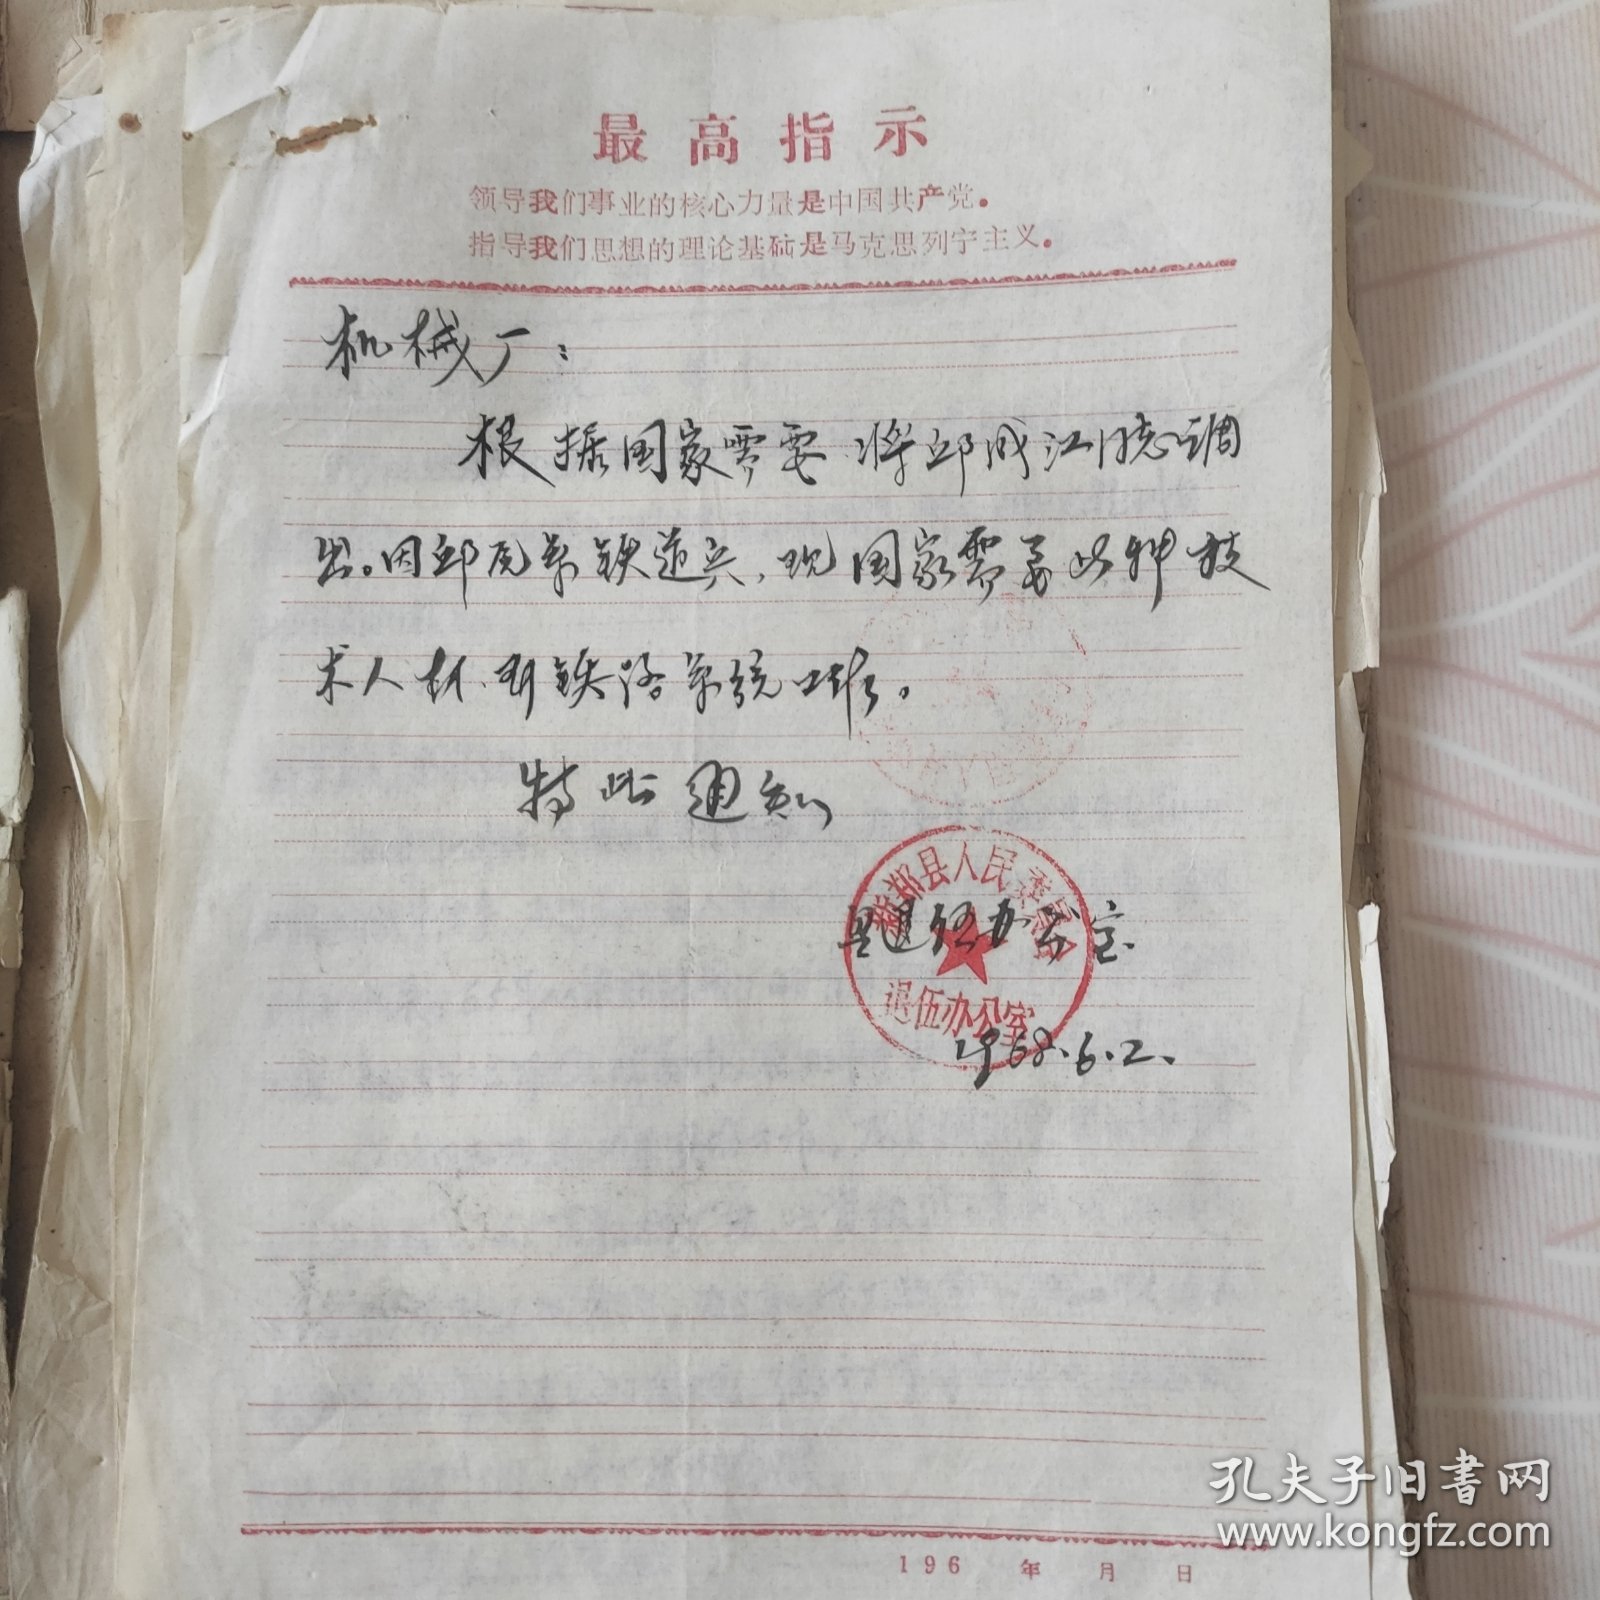 最高指示
领导我们事业的核心力量是中国共产党。
指导我们思想的理论基础是马克思列宁主义。
机械厂：
根据国家需要、将邱成江同志调
出。因邱原系铁道兵、现国家需要此种技
术人材、到铁路系统工作。
特此通知
新郑县人民委员会
县退伍办公室
退伍办公室
1968.6.2.
196 年 月 日
孔夫子旧书网
www.kongfz.com